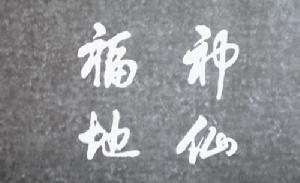 神仙
福地